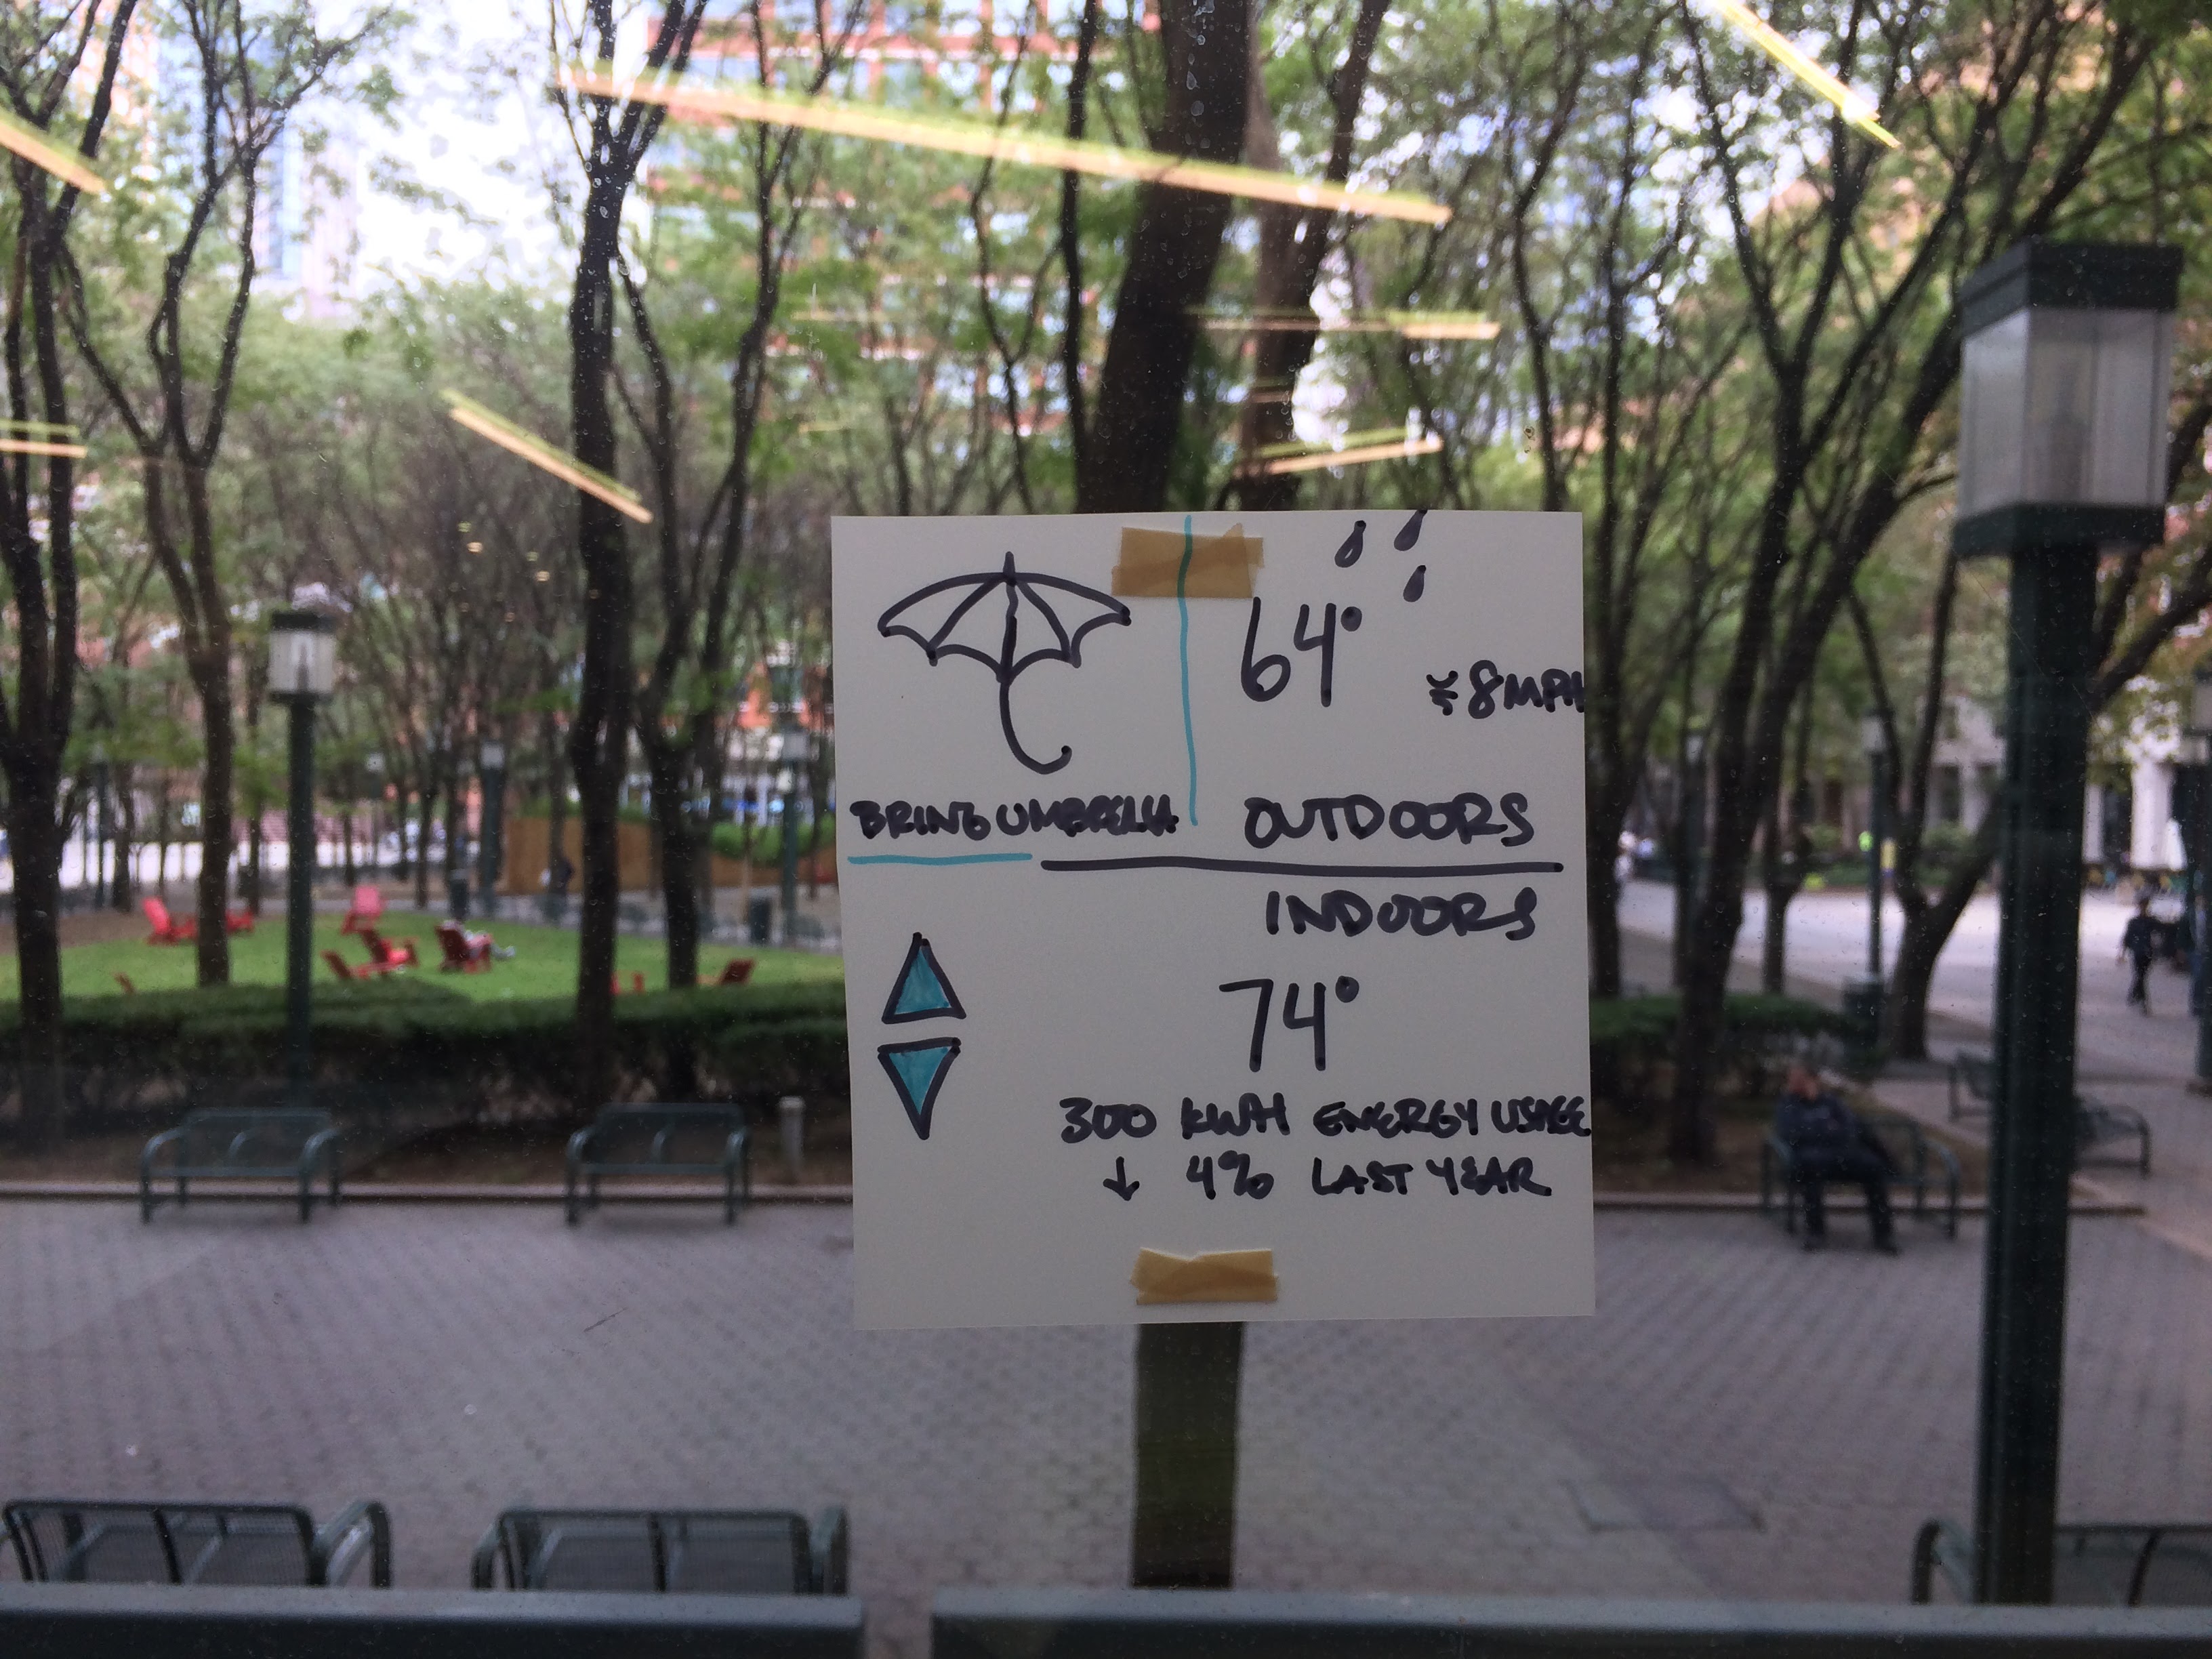 64°
8 MPH
BRING UMBRELLA
OUTDOORS
INDOORS
74°
300 KWH ENERGY USAGE
↓ 4% LAST YEAR